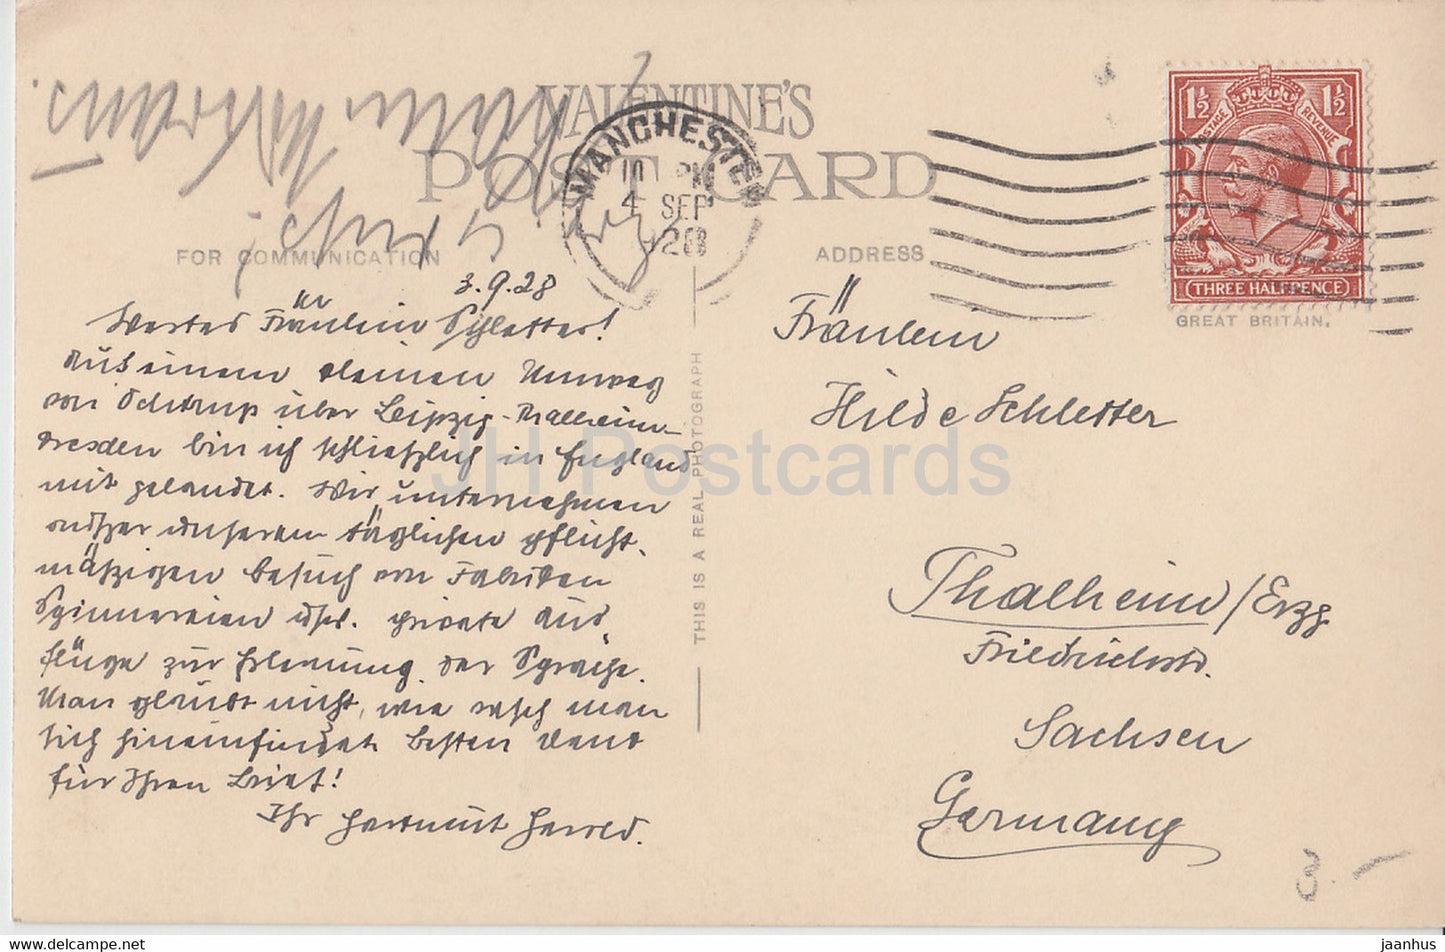 VALENTINE'S
POST CARD
FOR COMMUNICATION
ADDRESS
MANCHESTER
10 PM
4 SEP
1928
1½ 1½
POSTAGE REVENUE
THREE HALFPENCE
GREAT BRITAIN.
3.9.28
Wertes Fräulein Schletter!
Auf einem kleinen Umweg
von über Leipzig-Thalheim-
Dresden bin ich schließlich in England
mit gelandet. Wir unternehmen
außer unseren täglichen pflicht-
mäßigen Besuch von Fabriken
Spinnereien usw. private Aus
flüge zur Erlernung der Sprache.
Man glaubt nicht, wie rasch man
sich hineinfindet. Besten Dank
für Ihren Brief!
Ihr Hartmut
THIS IS A REAL PHOTOGRAPH
Fräulein
Hilde Schletter
Thalheim/Erzg.
Friedrichstr.
Sachsen
Germany
3.-
JH Postcards
jaanhus © delcampe.net